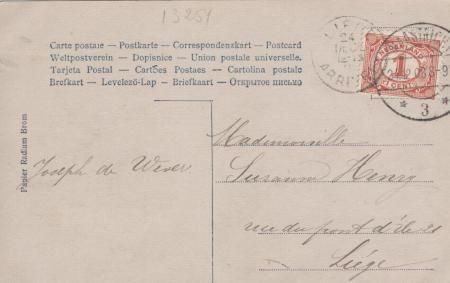 13251
Carte postale — Postkarte — Correspondenzkart — Postcard
Weltpostverein — Dopisnice — Union postale universelle.
Tarjeta Postal — Cartões Postaes — Cartolina postale
Brefkort — Levelező-Lap — Briefkaart — Открытое письмо
Papier Radium Brom
NEDERLAND
1
CENT
24
3
Joseph de Wever.
Mademoiselle
Susanne Henry
rue du pont d'île 21
Liége